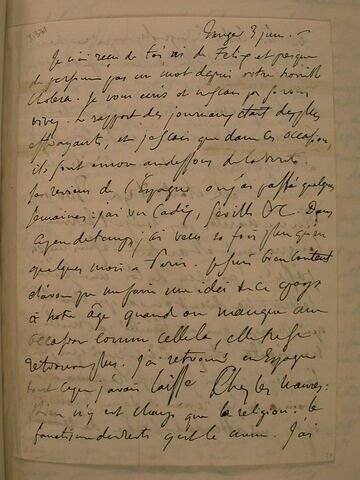 Tanger 5 juin.
Je n'ai reçu de toi ni de Felix et presque
de personne pas un mot depuis votre horrible
cholera. Je vous écris
vivez. Le rapport des journaux était des plus
effrayants, et je sçais que dans ces occasions,
ils sont encore au dessous de la vérité.
Je reviens de l'Espagne où j'ai passé quelques
semaines: j'ai vu Cadix, Séville &c. Dans
ce peu de temps, j'ai vécu 20 fois plus qu'en
quelques mois à Paris. Je suis bien content
d'avoir pu me faire une idée de ce pays
à notre âge quand on manque une
occasion comme celle là, elle ne se
retrouve plus. J'ai retrouvé en Espagne
tout ce que j'avais laissé chez les maures:
Rien n'y est changé que la religion: le
fanatisme du reste y est le même. J'ai